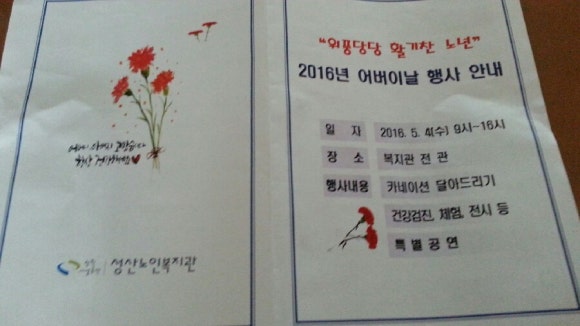 "위풍당당 활기찬 노년"
2016년 어버이날 행사 안내
일 자 2016. 5. 4(수) 9시~16시
장 소 복지관 전 관
행사내용 카네이션 달아드리기
건강검진, 체험, 전시 등
특별공연
성산노인복지관